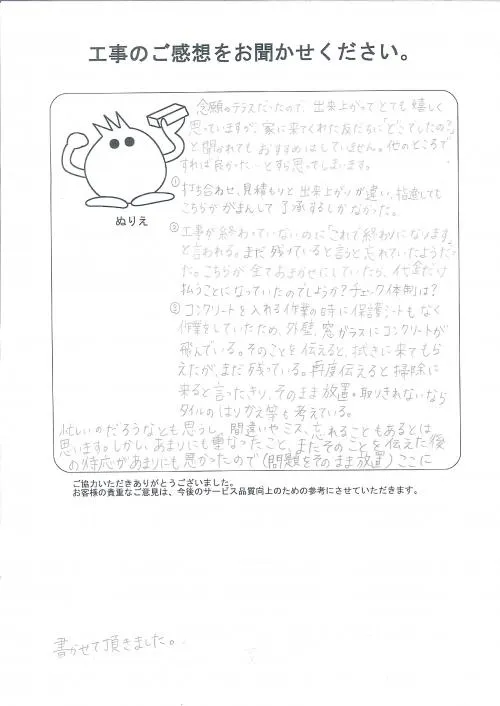 工事のご感想をお聞かせください。
念願のテラスだったので、出来上がってとても嬉しく
思っていますが、家に来てくれた友だちに「どこでしたの?」
と聞かれても おすすめはしていません。他のところで
すれば良かった…とすら思ってしまいます。
① 打ち合わせ、見積もりと 出来上がりが違い、指適しても
こちらががまんして了承するしかなかった。
② 工事が終わっていないのに「これで終わりになります」
と言われる。まだ残っていると言うと忘れていたようだっ
た。こちらが全ておまかせにしていたら、代金だけ
払うことになっていたのでしょうか?チェック体制は?
③ コンクリートを入れる作業の時に保護シートもなく
作業をしていたため、外壁、窓ガラスにコンクリートが
飛んでいる。そのことを伝えると、拭きに来てもら
えたが、まだ残っている。再度伝えると掃除に
来ると言ったきり、そのまま放置。取りきれないなら
タイルのはりかえ等も考えている。
忙しいのだろうなとも思うし、間違いやミス、忘れることもあるとは
思います。しかし、あまりにも重なったこと、またそのことを伝えた後
の対応があまりにも悪かったので(問題をそのまま放置)ここに
ぬりえ
ご協力いただきありがとうございました。
お客様の貴重なご意見は、今後のサービス品質向上のための参考にさせていただきます。
書かせて頂きました。